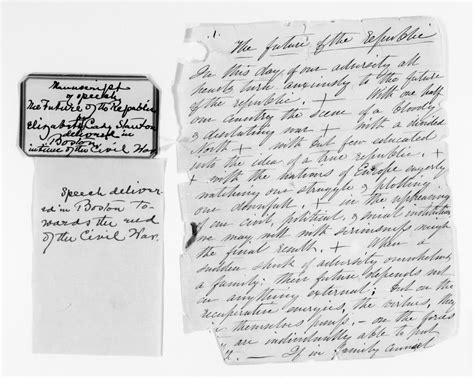 Manuscript
of speech
The Future of the Republic
by
Elizabeth Cady Stanton
delivered in
Boston
in time of the Civil War.
Speech deliver
ed in Boston to-
wards the end
of the Civil War.
1.
The future of the republic
In this day of our adversity all
hearts turn anxiously to the future
of the republic. + With one half
our country the scene of a bloody
& desolating war + with a divided
North + with but few educated
into the idea of a true republic. +
+ with the nations of Europe eagerly
watching our struggle & plotting
our downfall + in the upheaving
of our civil, political, & social institutions
one may well with seriousness weigh
the final result. + When a
sudden shock of adversity overwhelms
a family: their future depends not
on anything external: but on the
recuperative energies, the virtues, they
in themselves possess, - on the forces
are individually able to put
- If in family council